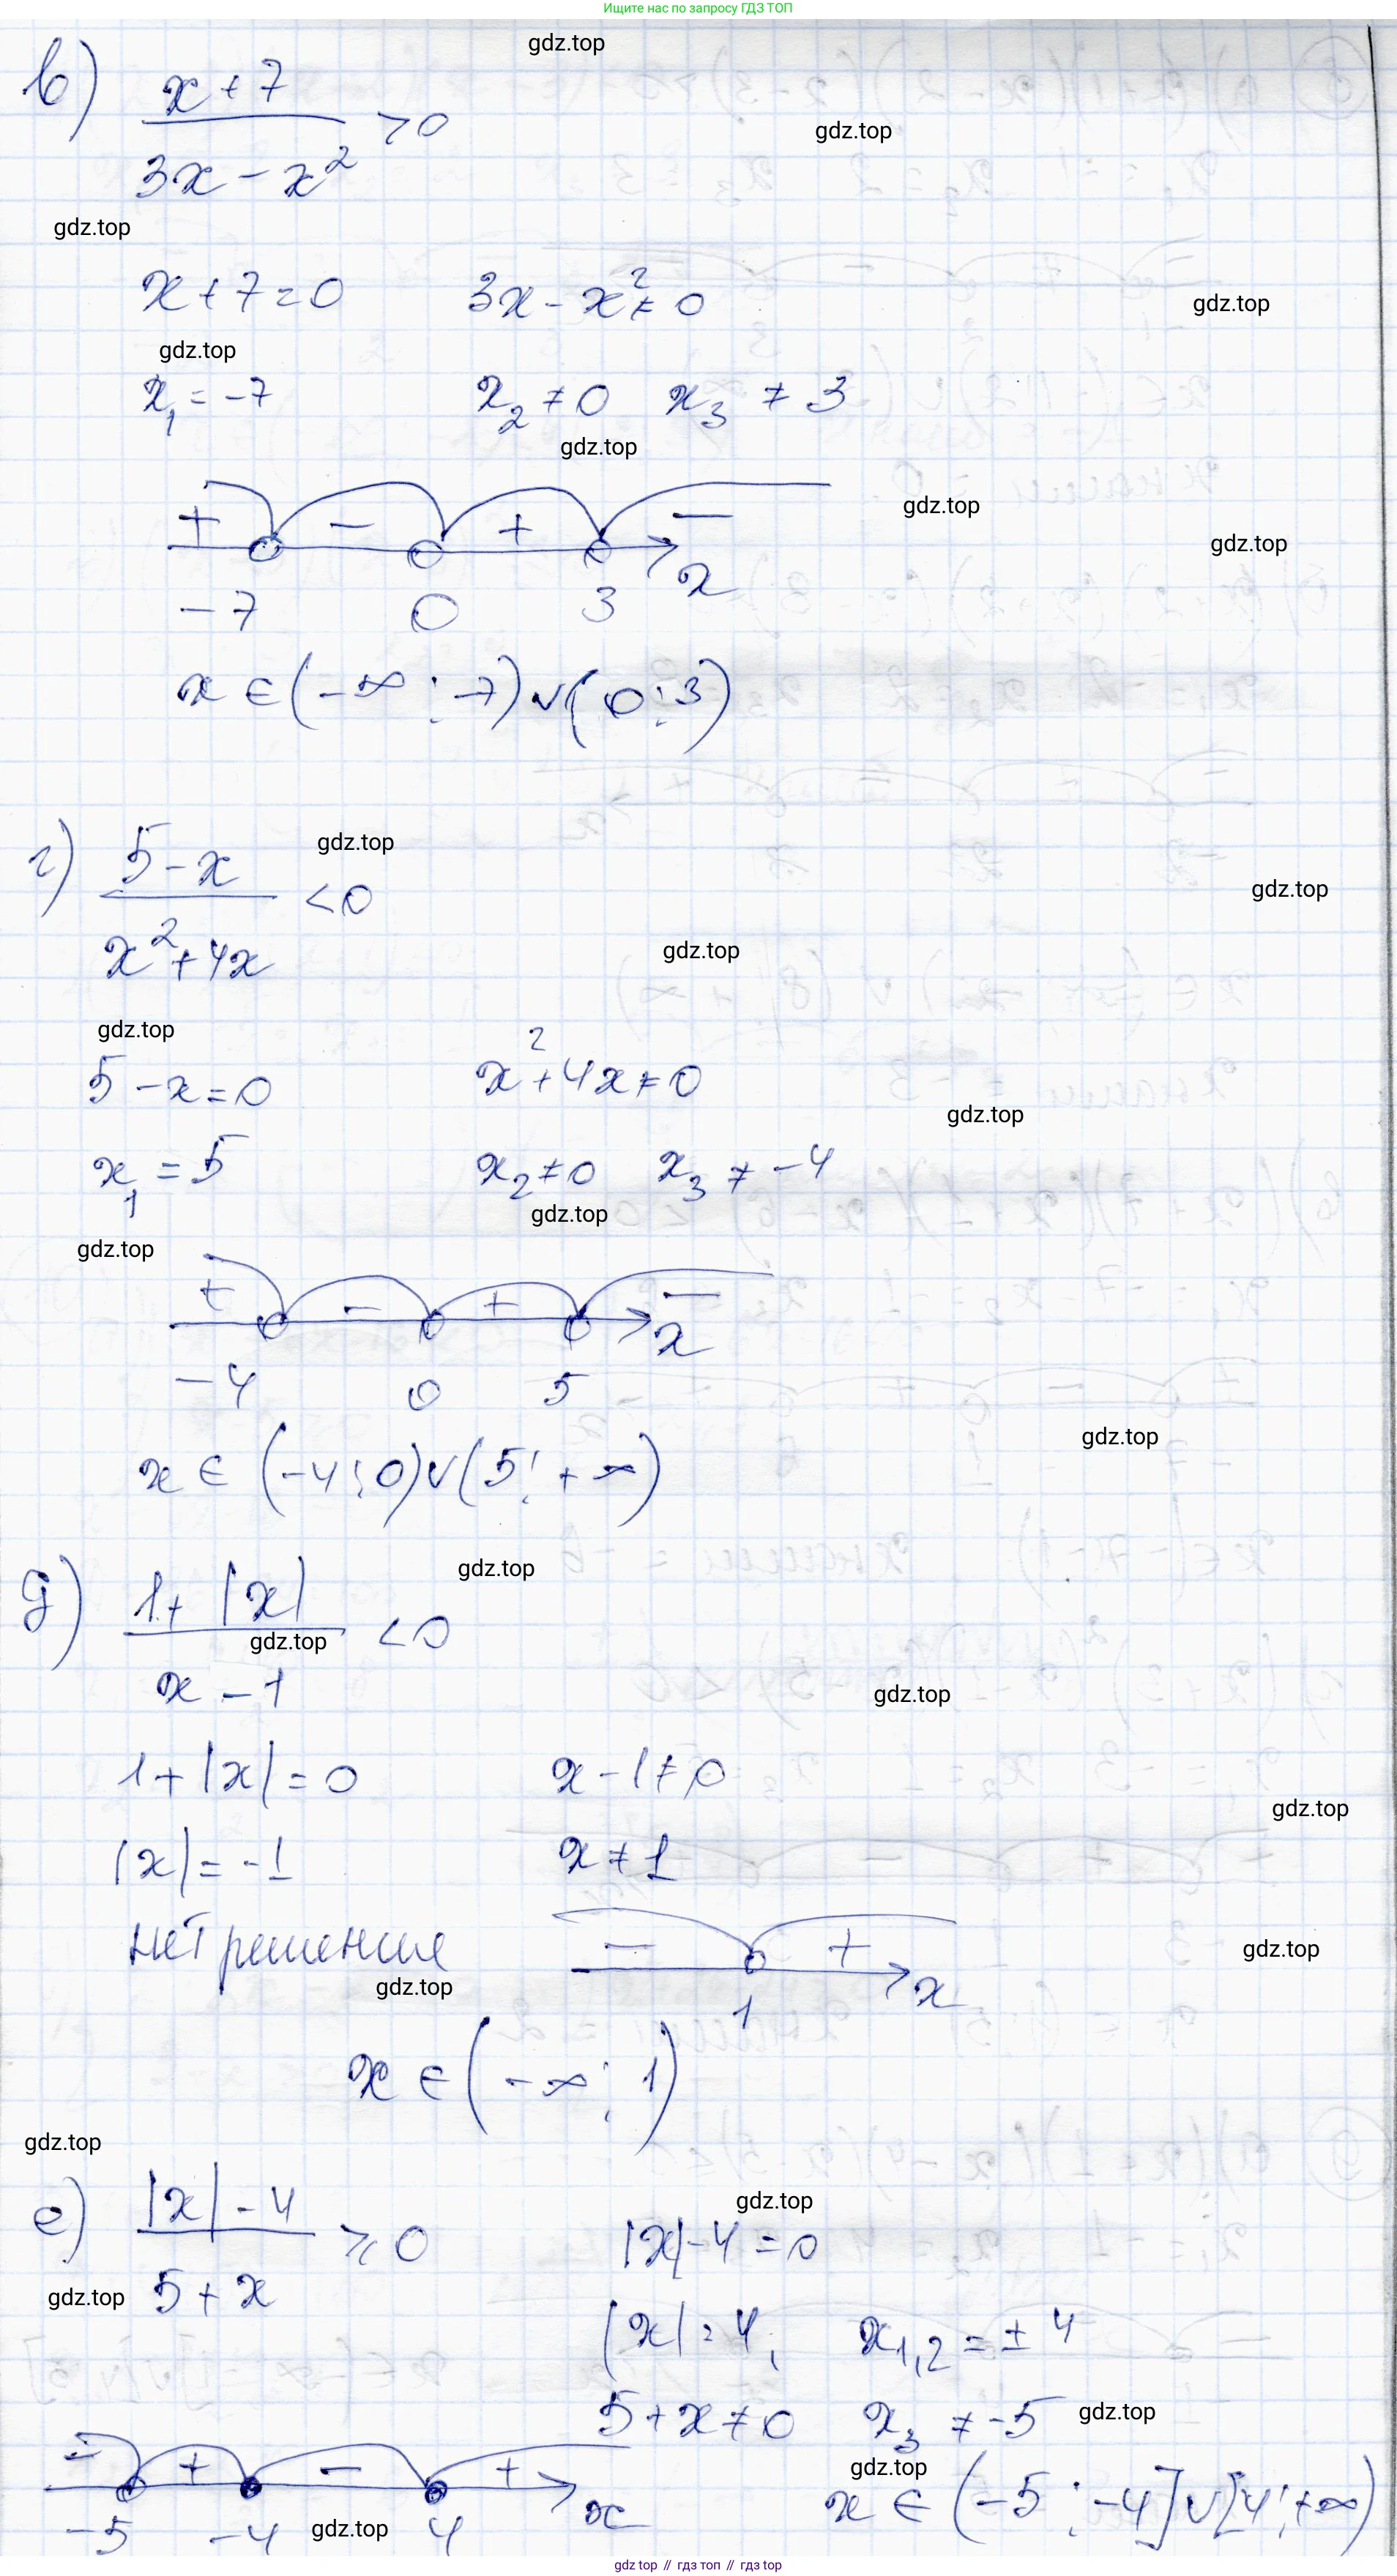 Ищите нас по запросу ГДЗ ТОП
gdz.top
в) (x + 7)/(3x - x²) > 0
gdz.top
gdz.top
x + 7 = 0   3x - x² ≠ 0
gdz.top
gdz.top
x₁ = -7   x₂ ≠ 0   x₃ ≠ 3
gdz.top
gdz.top
+ - + -
gdz.top
x
-7   0   3
x ∈ (-∞; -7) ∨ (0; 3)
г) (5 - x)/(x² + 4x) < 0
gdz.top
gdz.top
gdz.top
gdz.top
5 - x = 0   x² + 4x ≠ 0
gdz.top
x₁ = 5   x₂ ≠ 0   x₃ ≠ -4
gdz.top
gdz.top
+ - + -
x
-4   0   5
gdz.top
x ∈ (-4; 0) ∨ (5; +∞)
gdz.top
д) (1 + |x|)/(x - 1) < 0
gdz.top
gdz.top
1 + |x| = 0   x - 1 ≠ 0
gdz.top
|x| = -1   x ≠ 1
нет решения
- +
gdz.top
gdz.top
x
1
x ∈ (-∞; 1)
gdz.top
е) (|x| - 4)/(5 + x) ⩾ 0
gdz.top
|x| - 4 = 0
gdz.top
|x| = 4;   x₁,₂ = ± 4
5 + x ≠ 0   x₃ ≠ -5
gdz.top
- + - +
gdz.top
x
-5   -4   4
gdz.top
x ∈ (-5; -4] ∨ [4; +∞)
gdz top // гдз топ // gdz top